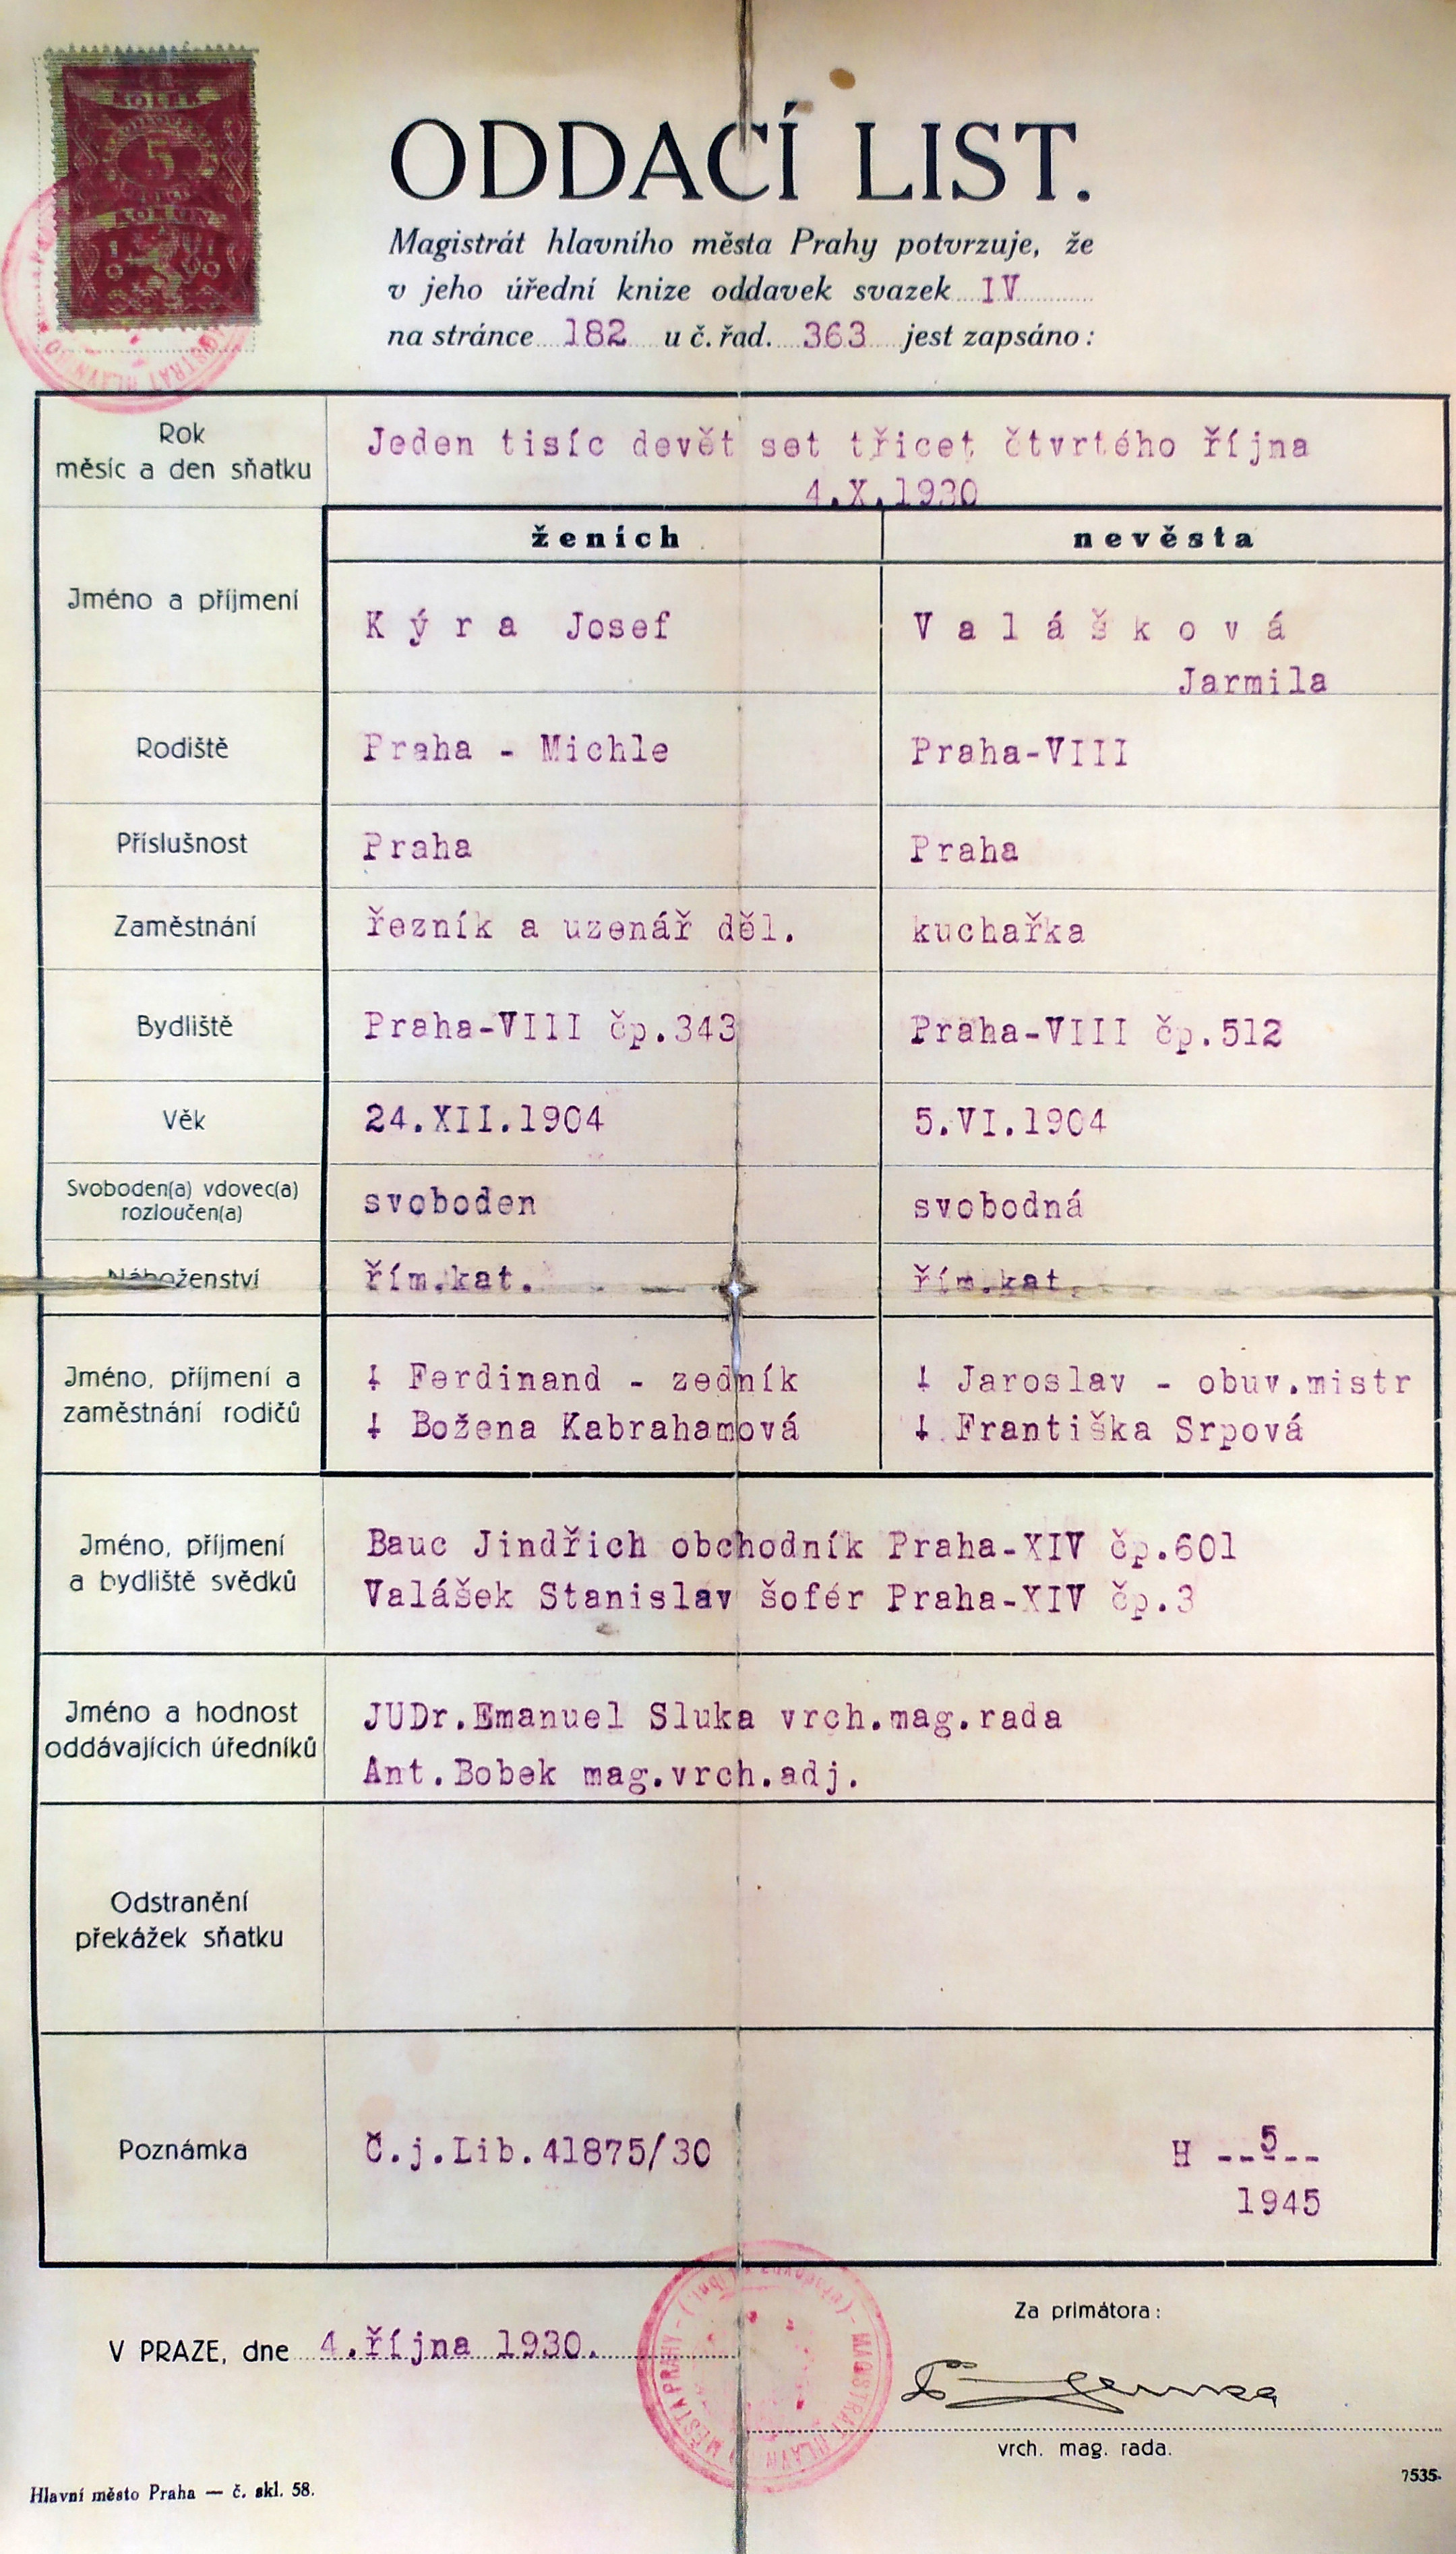 5
ODDACÍ LIST.
Magistrát hlavního města Prahy potvrzuje, že
v jeho úřední knize oddavek svazek IV
na stránce 182 u č. řad. 363 jest zapsáno:
Rok
měsíc a den sňatku
Jeden tisíc devět set třicet čtvrtého října
4.X.1930
ženich nevěsta
Jméno a příjmení
K ý r a Josef V a l á š k o v á
Jarmila
Rodiště Praha - Michle Praha-VIII
Příslušnost Praha Praha
Zaměstnání řezník a uzenář děl. kuchařka
Bydliště Praha-VIII čp.343 Praha-VIII čp.512
Věk 24.XII.1904 5.VI.1904
Svoboden(a) vdovec(a)
rozloučen(a)
svoboden svobodná
Náboženství řím.kat. řím.kat.
Jméno, příjmení a
zaměstnání rodičů
‡ Ferdinand - zedník ‡ Jaroslav - obuv.mistr
‡ Božena Kabrahamová ‡ Františka Srpová
Jméno, příjmení
a bydliště svědků
Bauc Jindřich obchodník Praha-XIV čp.601
Valášek Stanislav šofér Praha-XIV čp.3
Jméno a hodnost
oddávajících úředníků
JUDr.Emanuel Sluka vrch.mag.rada
Ant.Bobek mag.vrch.adj.
Odstranění
překážek sňatku
Poznámka
Č.j.Lib.41875/30 H --5--
1945
Za primátora:
V PRAZE, dne 4.října 1930.
MAGISTRÁT HLAVNÍHO MĚSTA PRAHY
vrch. mag. rada.
Hlavní město Praha — č. skl. 58.
7535.